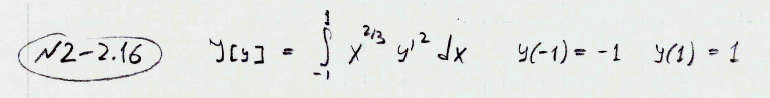 N2-2.16 J[y] = ∫_{-1}^{1} x^{2/3} y'^2 dx y(-1) = -1 y(1) = 1